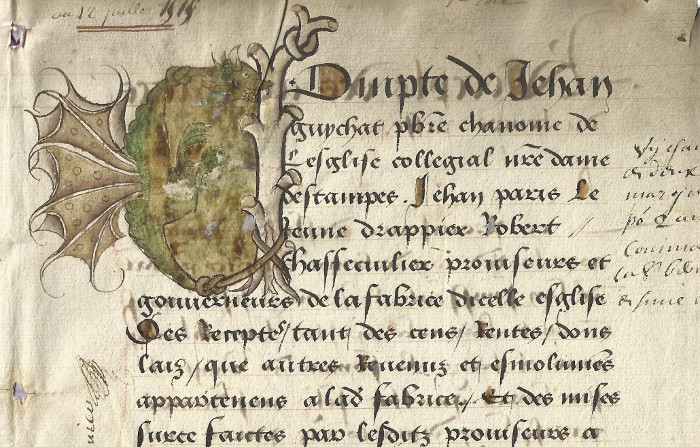 au 12 juillet 1519
Compte de Jehan
guychat pbre chanoine de
lesglise collegial nre dame
destampes. Jehan paris Le
Jeune drappier Robert //
chasseculier proviseurs et
gouverneurs de la fabrice dicelle esglise
Des Receptes / tant des cens / Rentes / dons
laiz / que autres Revenuz et esmolumens
appartenens a lad fabrice / Et des mises
surce faictes par lesditz proviseurs a